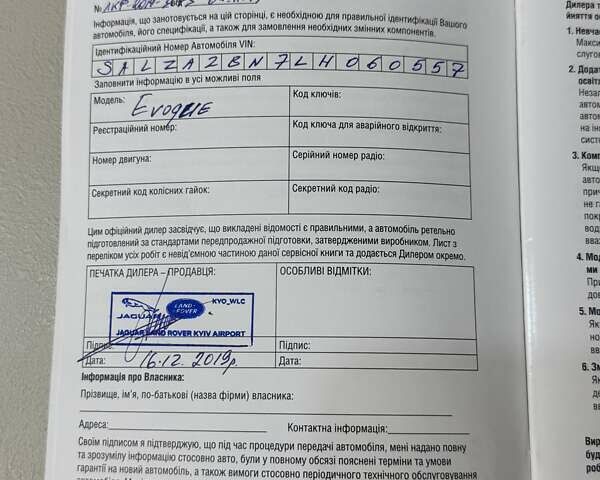 №
Інформація, що занотовується на цій сторінці, є необхідною для правильної ідентифікації Вашого
автомобіля, його специфікації, а також для замовлення необхідних змінних компонентів.
Ідентифікаційний Номер Автомобіля VIN:
SALZA2BN7LH060557
Заповнити інформацію в усі можливі поля
Модель: Evoque
Код ключів:
Реєстраційний номер:
Код ключа для аварійного відкриття:
Номер двигуна:
Серійний номер радіо:
Секретний код колісних гайок:
Секретний код радіо:
Цим офіційний дилер засвідчує, що викладені відомості є правильними, а автомобіль ретельно
підготовлений за стандартами передпродажної підготовки, затвердженими виробником. Лист з
переліком усіх робіт є невід'ємною частиною даної сервісної книги та додається Дилером окремо.
ПЕЧАТКА ДИЛЕРА – ПРОДАВЦЯ:
ОСОБЛИВІ ВІДМІТКИ:
KYO_WLC
LAND-
ROVER
JAGUAR
JAGUAR LAND ROVER KYIV AIRPORT
Підпис:
Підпис:
Дата: 16.12.2019р
Дата:
Інформація про Власника:
Прізвище, ім'я, по-батькові (назва фірми) власника:
Адреса:
Контактна інформація:
Своїм підписом я підтверджую, що під час процедури передачі автомобіля, мені надано повну
та зрозумілу інформацію стосовно авто, були у повному обсязі пояснені терміни та умови
гарантії на новий автомобіль, а також вимоги стосовно періодичного технічного обслуговування
Дилера т
1. Невча
Макси
слугов
2. Додат
освітл
Незал
автом
автом
на ін
систе
3. Комп
Якщ
авто
прич
не га
покр
вод
вва
4. Мод
ми
При
5. Мо
Якщ
но
вв
6. Зм
Як
де
вв
Вир
буд
роб